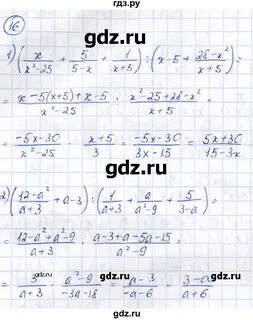 гдз.ру
16
gdz.ru
1) (x/(x²-25) + 5/(5-x) + 1/(x+5)) : (x-5 + (28-x²)/(x+5)) =
= (x-5(x+5)+x-5)/(x²-25) : (x²-25+28-x²)/(x+5) =
= (-5x-30)/(x²-25) · (x+5)/3 = (-5x-30)/(3x-15) = (5x+30)/(15-3x).
gdz.ru
2) ((12-a²)/(a+3) + a-3) : (1/(a+3) + a/(a²-9) + 5/(3-a)) =
= (12-a²+a²-9)/(a+3) : (a-3+a-5a-15)/(a²-9) =
= 3/(a+3) · (a²-9)/(-3a-18) = (a-3)/(-a-6) = (3-a)/(a+6).
gdz.ru